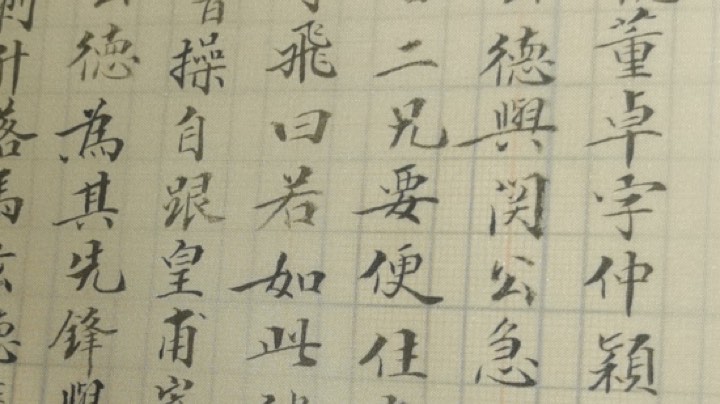 董卓字仲穎
德與関公急
二兄要便住
飛曰若如此
操自跟皇甫
德為其先鋒
落馬玄德